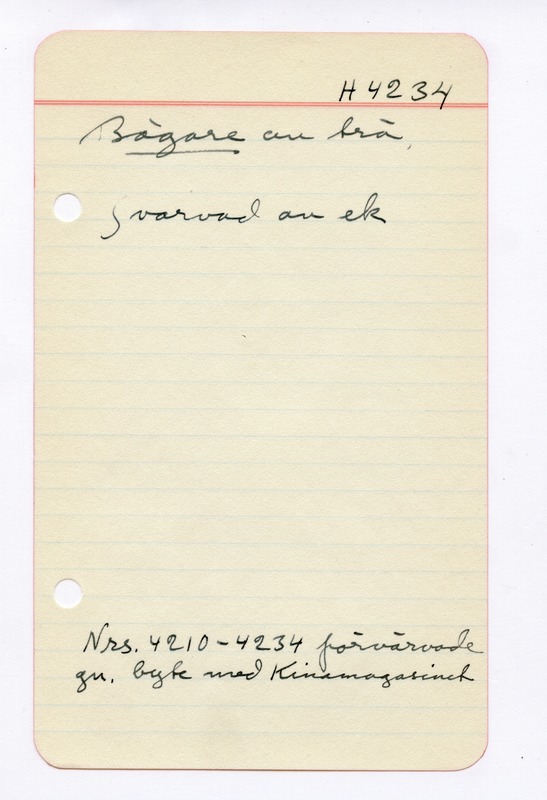 H 4234
Bägare av trä,
Svarvad av ek
Nrs. 4210-4234 förvärvade
gn. byte med Kinamagasinet